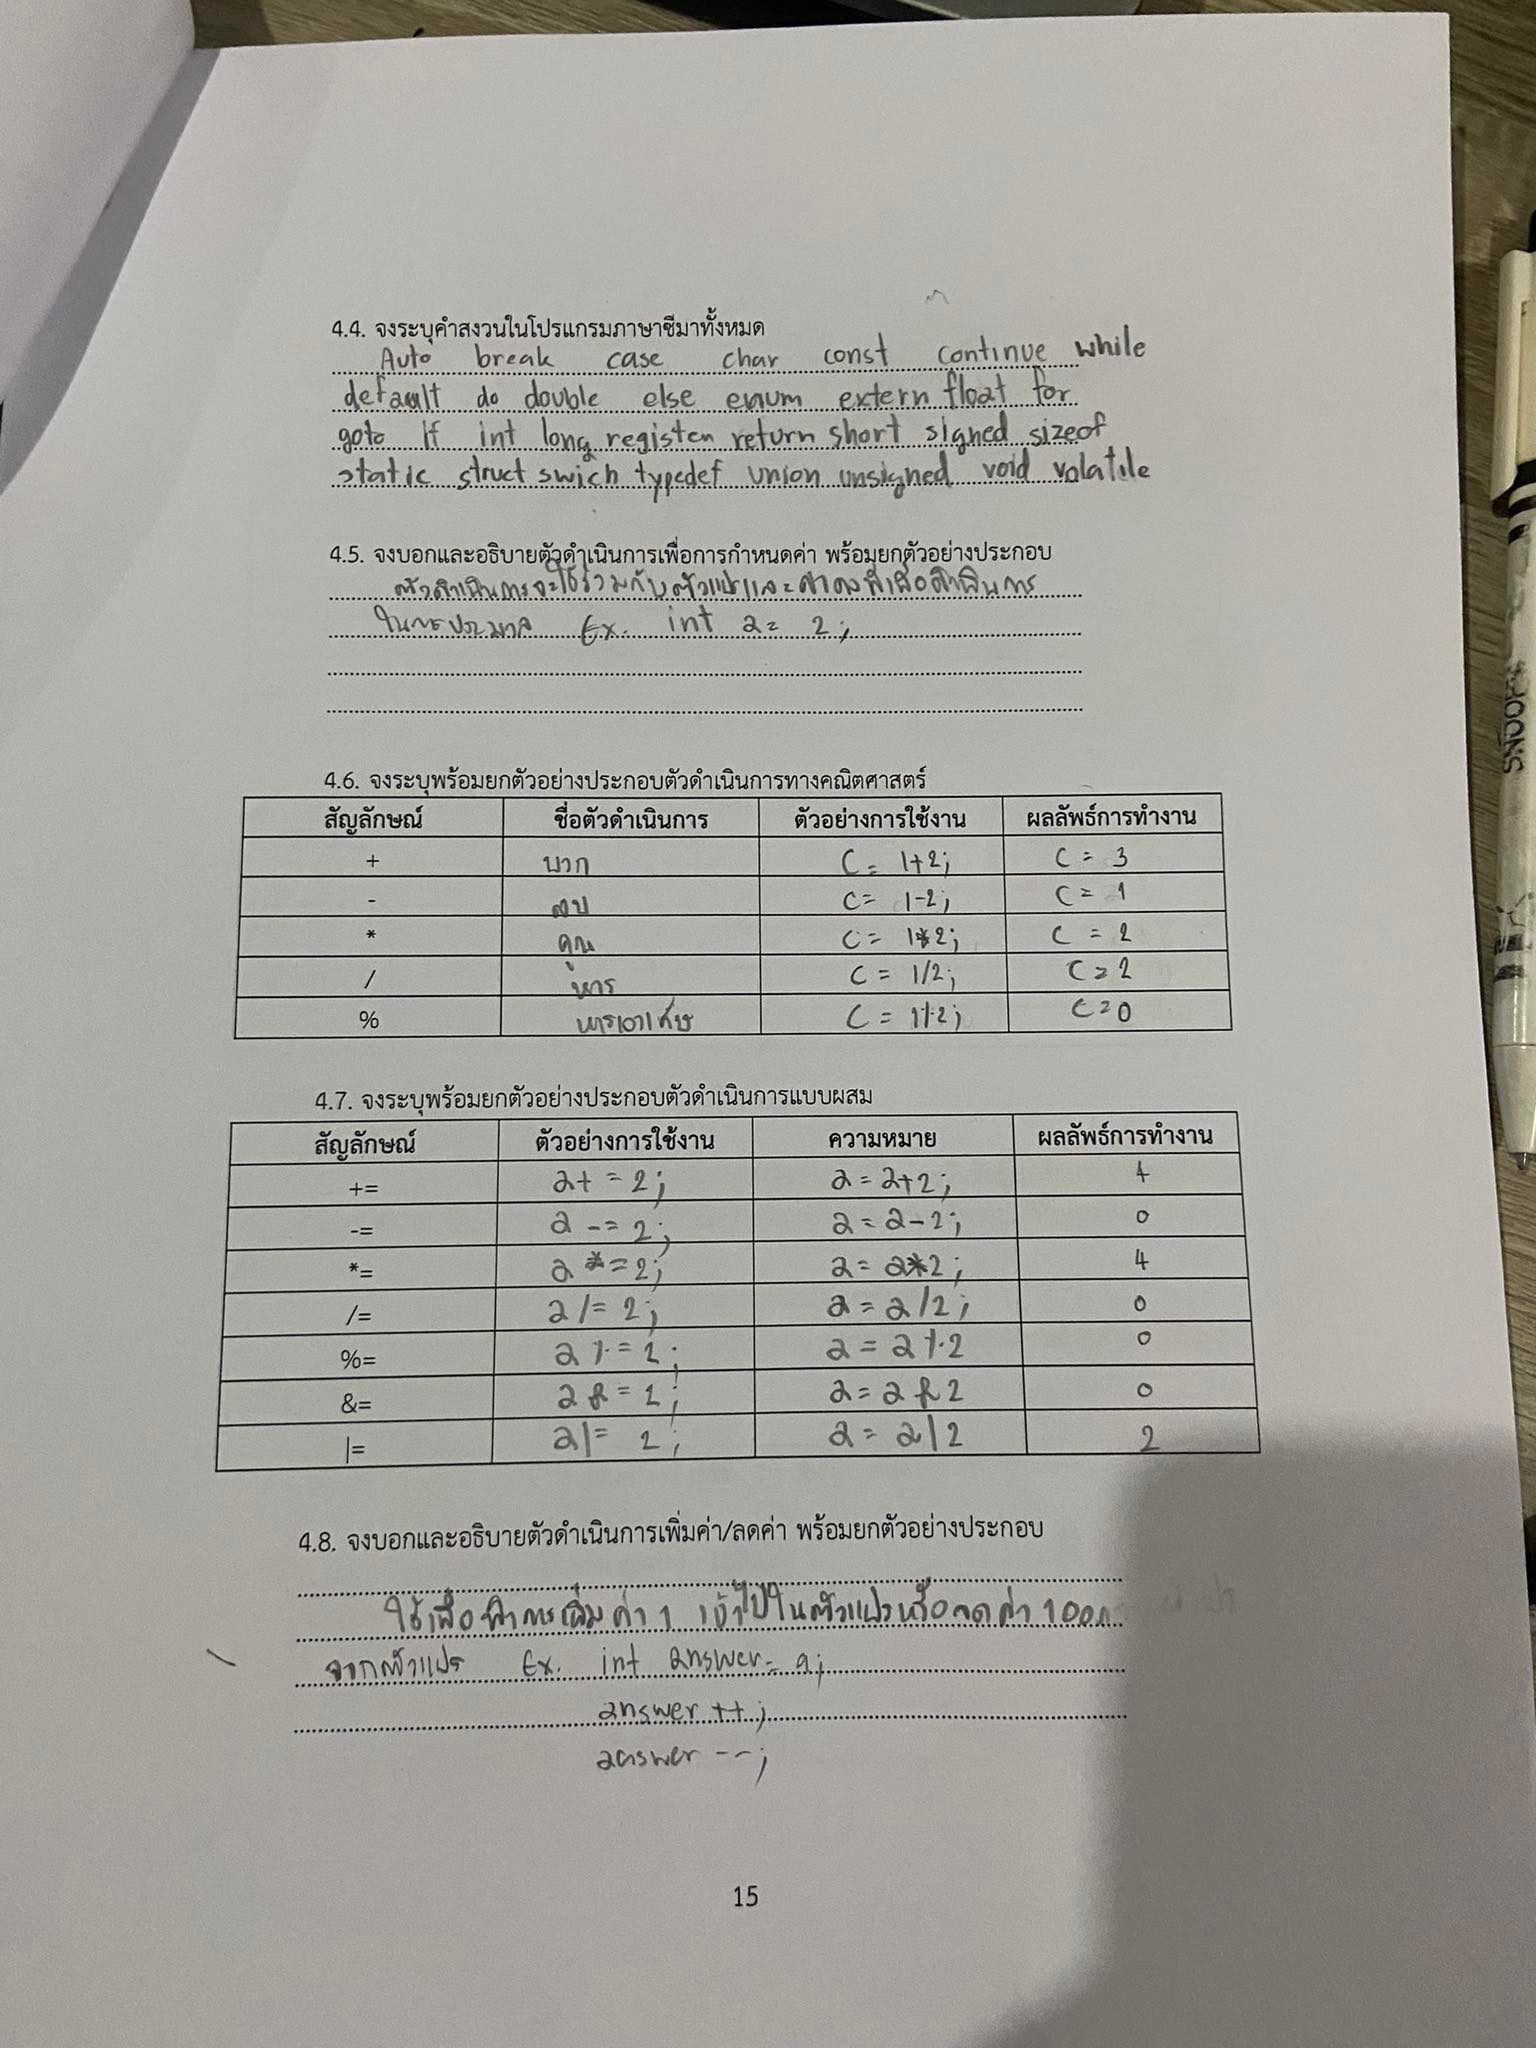 4.4. จงระบุคำสงวนในโปรแกรมภาษาซีมาทั้งหมด
Auto break case char const continue while
default do double else enum extern float for
goto If int long registen return short signed sizeof
static struct swich typedef union unsigned void volatile
4.5. จงบอกและอธิบายตัวดำเนินการเพื่อการกำหนดค่า พร้อมยกตัวอย่างประกอบ
ตัวดำเนินการจะใช้ร่วมกับตัวแปรและค่าคงที่เพื่อดำเนินการ
Ex. int a = 2;
4.6. จงระบุพร้อมยกตัวอย่างประกอบตัวดำเนินการทางคณิตศาสตร์
สัญลักษณ์ ชื่อตัวดำเนินการ ตัวอย่างการใช้งาน ผลลัพธ์การทำงาน
+ บวก C = 1+2; C = 3
- ลบ C = 1-2; C = 1
* คูณ C = 1*2; C = 2
/ หาร C = 1/2; C = 2
% หารเอาเศษ C = 1%2; C = 0
4.7. จงระบุพร้อมยกตัวอย่างประกอบตัวดำเนินการแบบผสม
สัญลักษณ์ ตัวอย่างการใช้งาน ความหมาย ผลลัพธ์การทำงาน
+= a+=2; a=a+2; 4
-= a-=2; a=a-2; 0
*= a*=2; a=a*2; 4
/= a/=2; a=a/2; 0
%= a%=2; a=a%2 0
&= a&=2; a=a&2 0
|= a|=2; a=a|2 2
4.8. จงบอกและอธิบายตัวดำเนินการเพิ่มค่า/ลดค่า พร้อมยกตัวอย่างประกอบ
ใช้เพื่อทำการเพิ่มค่า 1 เข้าไปในตัวแปรหรือลดค่า 1 ออก
จากตัวแปร Ex. int answer = a;
answer ++;
answer --;
15